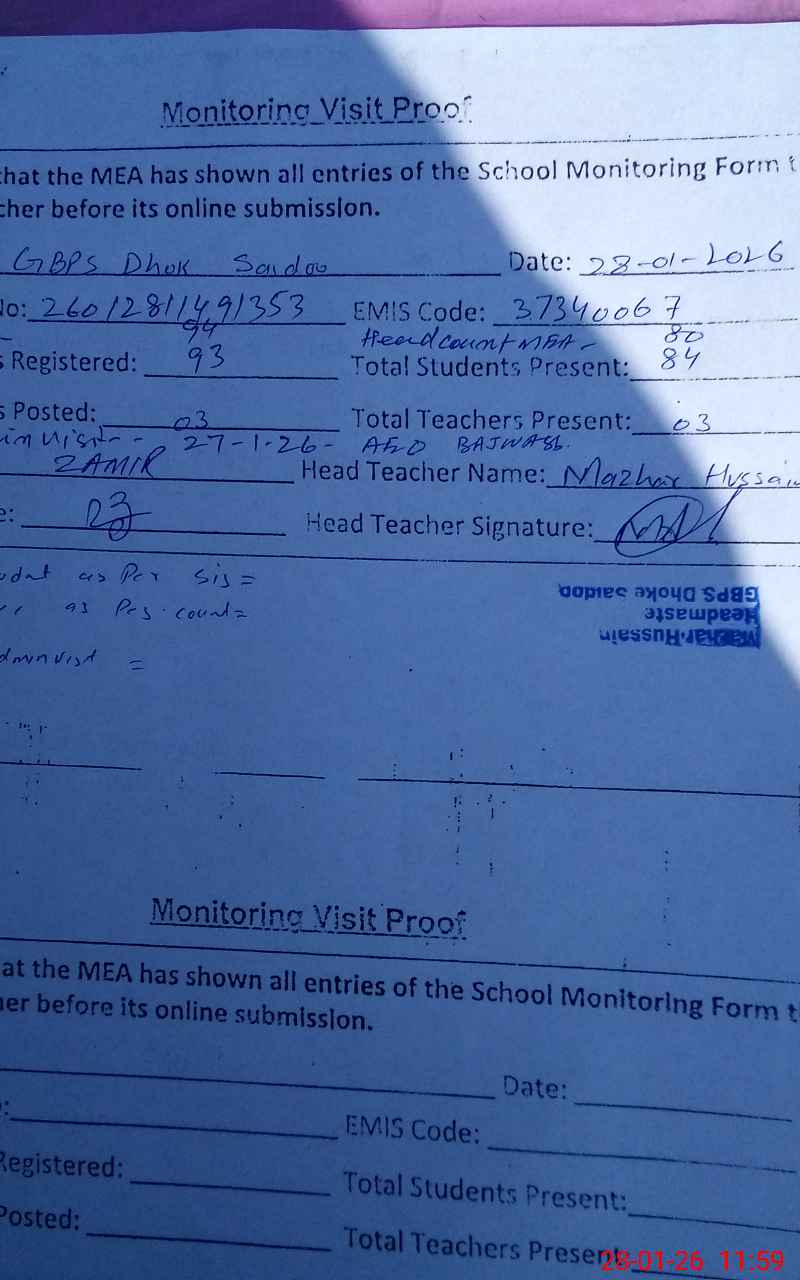 Monitoring Visit Proof
that the MEA has shown all entries of the School Monitoring Form t
cher before its online submission.
GBPS Dhok Saidoo Date: 28-01-2026
No: 26012811491353 EMIS Code: 37340067
94 Headcount MEA - 80
s Registered: 93 Total Students Present: 84
s Posted: 03 Total Teachers Present: 03
27-1-26- AEO BAJWA
ZAMIR Head Teacher Name: Mazhar Hussain
e: Head Teacher Signature:
as Per Sis =
as Per count=
=
GBPS Dhoke Saidoo
Headmaste
Mazhar Hussain
Monitoring Visit Proof
at the MEA has shown all entries of the School Monitoring Form t
er before its online submission.
Date:
EMIS Code:
Registered: Total Students Present:
Posted: Total Teachers Present
28-01-26 11:59